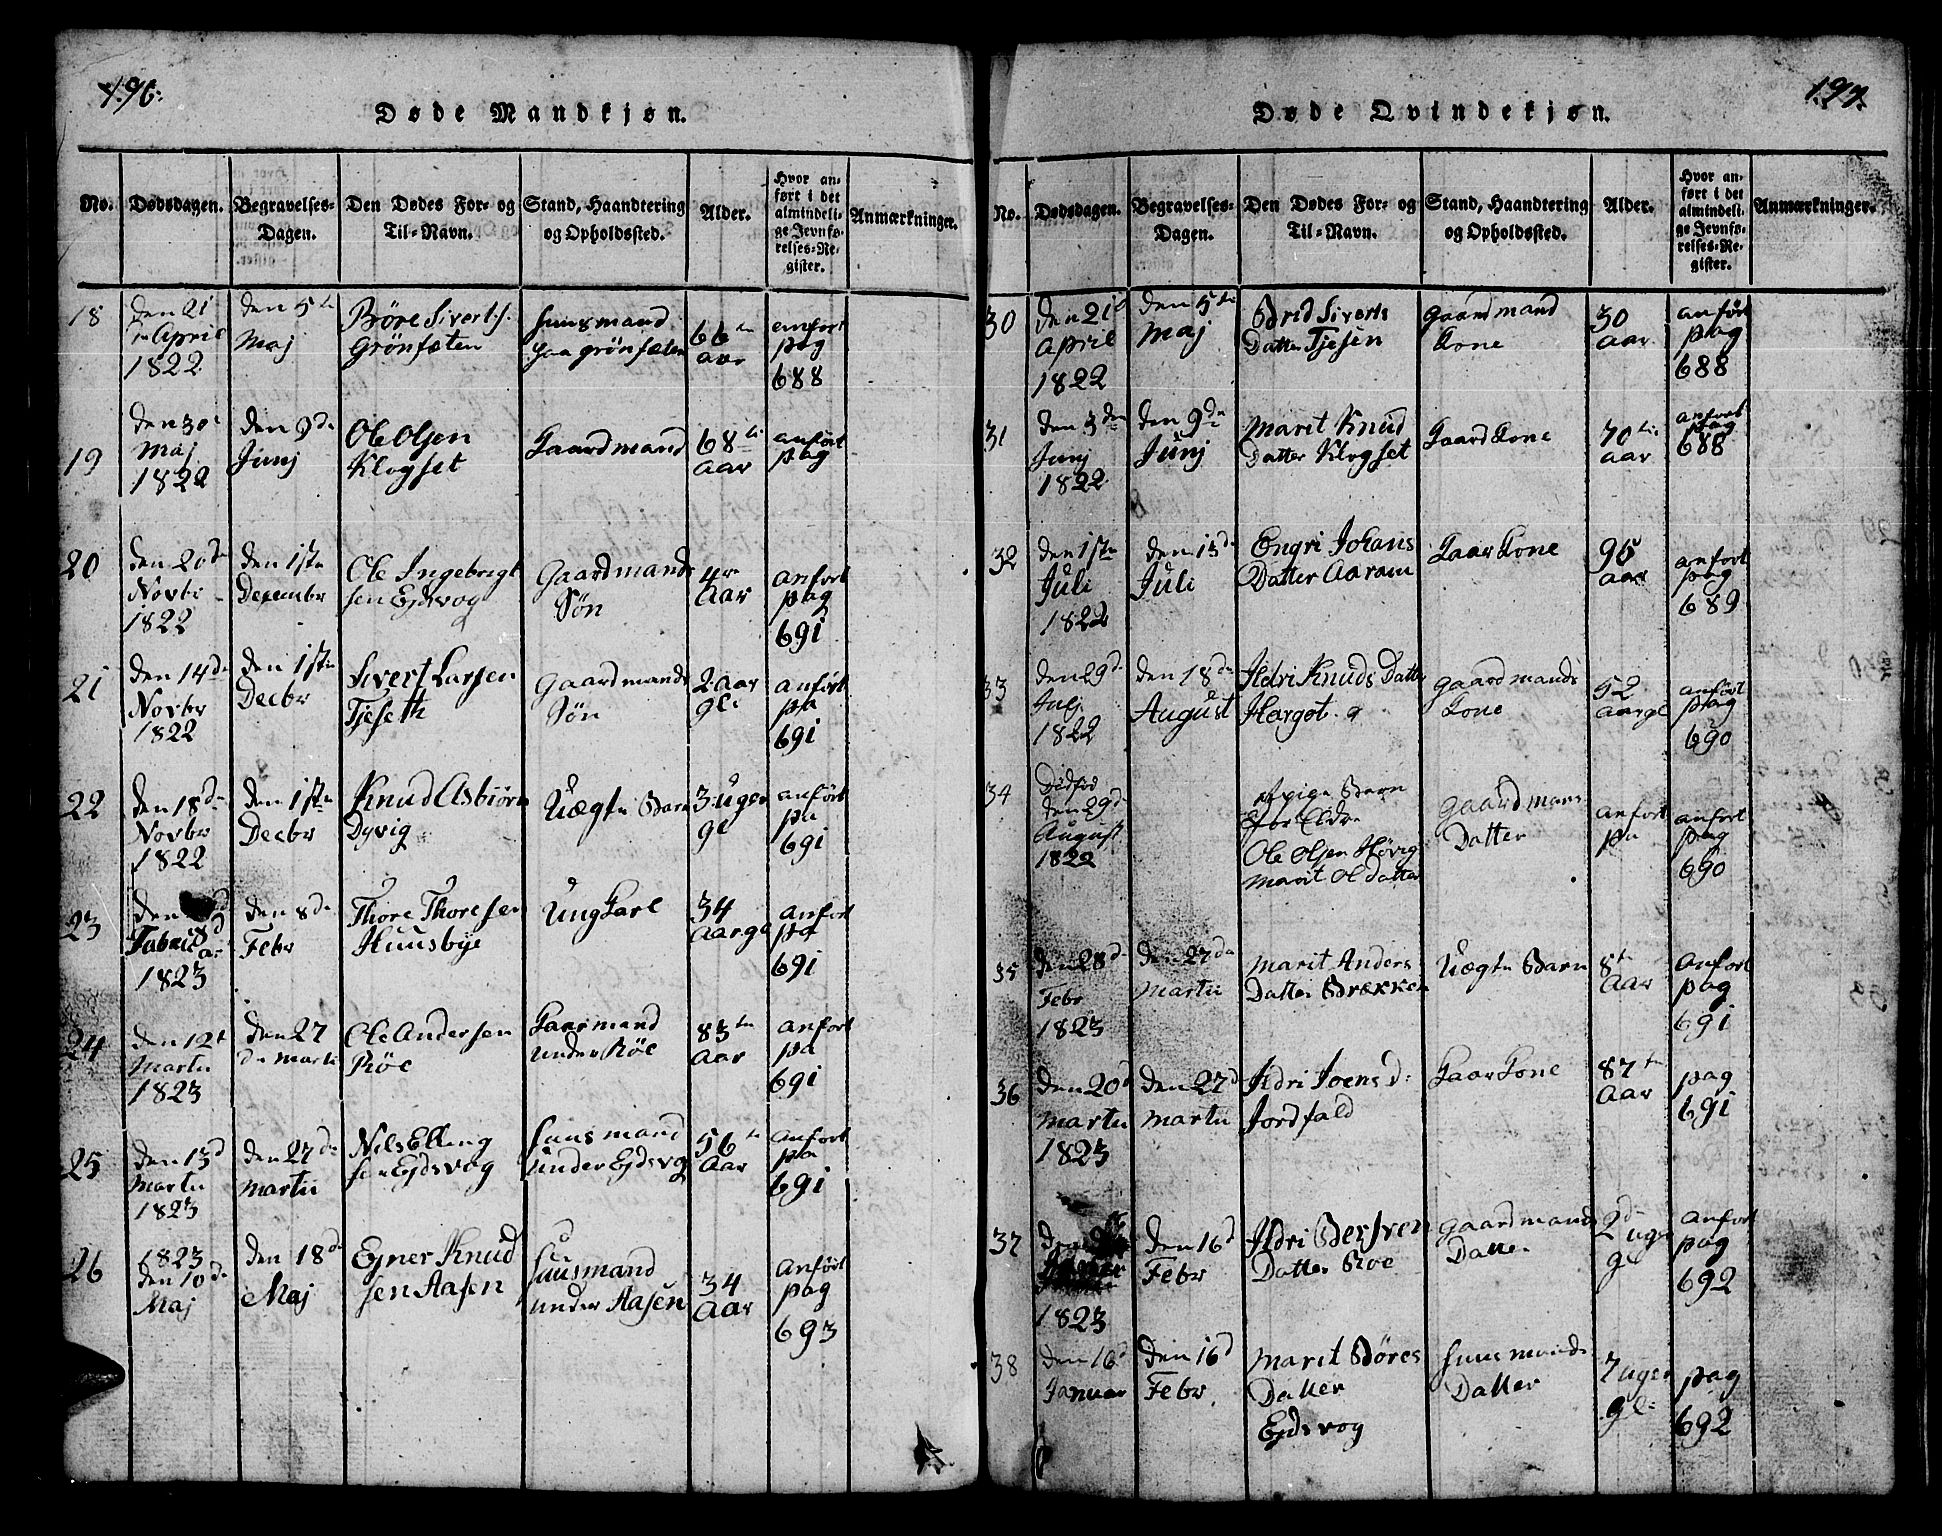 196.
Døde Mandkjøn.
No. Dødsdagen. Begravelses-Dagen. Den Dødes For- og Til-Navn. Stand, Haandtering og Opholdssted. Alder. Hvor anført i det almindelige Jevnførelses-Register. Anmærkninger.
18
den 21
April
1822
den 5te
Maj
Børe Siverts.
Grönsæten
huusmand
paa grönsæten
66te
aar
anfort
pag
688
19
den 30
Maj
1822
den 9de
Junj
Ole Olsen
Klogset
Gaardmand
68te
aar
anført
pag
20
den 20de
Novbr
1822
den 1ste
Decembr
Ole Ingebrigt
sen Ejdsvog
Gaardmands
Søn
4re
Aar
anfort
pag
691
21
den 14de
Novbr
1822
den 1ste
Decbr
Sivert Larsen
Tjeseth
Gaardmands
Søn
2 aar
gl:
anført
pa
691
22
den 18de
Novbr
1822
den 1ste
Decbr
Knud Asbiörn
Dyvig
Uægte Barn
3 uger
gl
anført
pa
691
23
den
1823
den 8de
Febr
Thore Thoresen
Huusbye
Ung Karl
34
Aargl
anfort
pa
691
24
den 12t
Martii
1823
den 27
de martii
Ole Andersen
Röe
Kaarmand
under Röe
83de
Aar
anfort
pa
691
25
den 13d
Martii
1823
den 27de
martii
Nils Elling
sen Ejdsvog
huusmand
under Ejdsvog
56te
Aar
anfort
pa
691
26
1823
den 10de
Maj
den 18de
Maj
Ejner Knud
sen Aasen
huusmand
under Aasen
34
Aar
anført
pag
693
197.
Døde Qvindekjøn.
No. Dødsdagen. Begravelses-Dagen. Den Dødes For- og Til-Navn. Stand, Haandtering og Opholdssted. Alder. Hvor anført i det almindelige Jevnførelses-Register. Anmærkninger.
30
den 21d
April
1822
den 5te
Maj
Brid Siverts
Datter Tjesen
Gaardmand
Kone
30
aar
anført
pag
688
31
den 3den
Junj
1822
den 9de
Junj
Marit Knud
Datter Klogset
Gaard Kone
70ti
aar
anfort
pag
688
32
den 1ste
Juli
1822
den 13de
Juli
Engri Johans
Datter Aaram
Kaar Kone
95
aar
anfort
pag
689
33
den 29de
Julj
1822
den 18de
August
Ildri Knuds Datter
Hargot
gaardmands
Kone
52
aargl
anfort
pag
690
34
Dødfød
den 29de
August
1822
Barn
Ole Olsen Hövig
Marit Ol Datter
gaardmans
Datter
anfort
pa
anfort
pag
690
35
den 28de
Febr
1823
den 27de
martii
Marit Anders
Datter Brækken
Uægte Barn
8te
Aar
anfort
pag
691
36
den 20d
martii
1823
den 27d
martii
Ildri Joens d:
Jordfald
Kaar Kone
87te
Aar
pag
691
37
1823
den 16d
Febr
Ildri Bersven
Datter Roe
gaardmands
Datter
2 uger
gl
anfort
pag
692
38
den 16d
Januar
den 16d
Febr
Marit Børes
Datter
Ejdsvog
huusmands
Datter
7 uger
gl:
pag
692